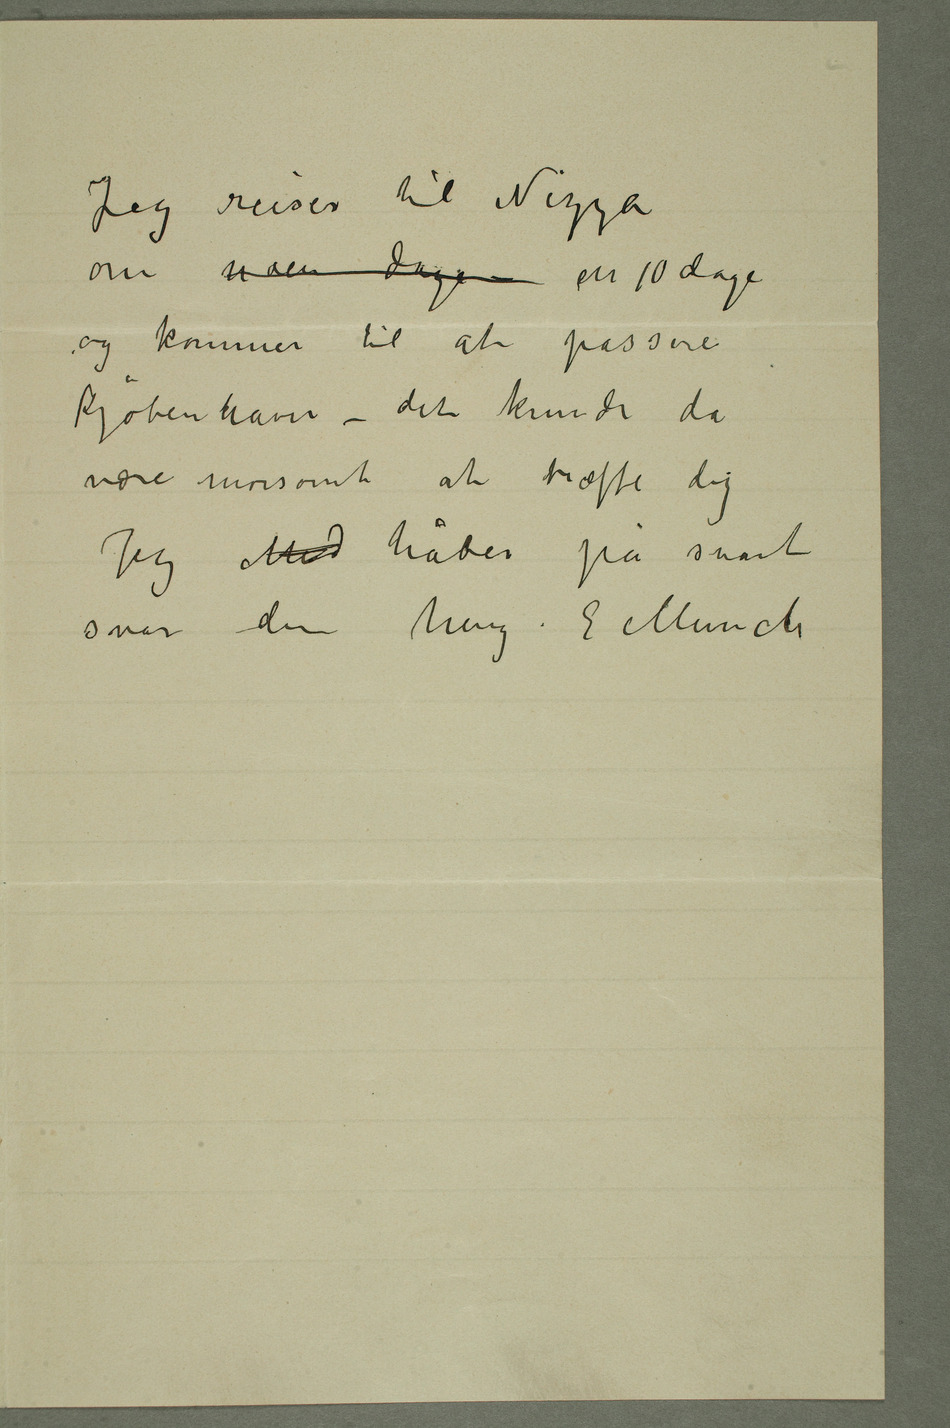 Jeg reiser til Nizza
om noen dage en 10 dage
og kommer til at passere
Kjøbenhaven – det kunde da
være morsomt at træffe dig
Jeg Med håber på snart
svar din heng. E Munch